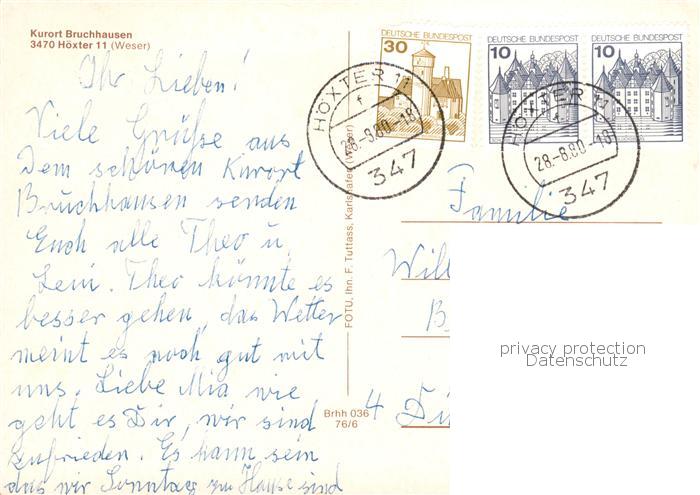 Kurort Bruchhausen
3470 Höxter 11 (Weser)
Ihr Lieben!
Viele Grüße aus
Dem schönen Kurort
Bruchhausen senden
Euch alle Theo u,
Leni. Theo könnte es
besser gehen, das Wetter
meint es noch gut mit
uns. Liebe Mia wie
geht es Dir, wir sind
zufrieden. Es kann sein
das wir Sonntag zu Hause sind
FOTU, Ihn. F. Tuttass, Karlshafen (Weser)
Brhh 036
76/6
DEUTSCHE BUNDESPOST
30
DEUTSCHE BUNDESPOST
10
DEUTSCHE BUNDESPOST
10
HÖXTER 11
f
28.-8.80-18
347
HÖXTER 11
f
28.-8.80-18
347
Familie
Will
B
4 Dü
privacy protection
Datenschutz